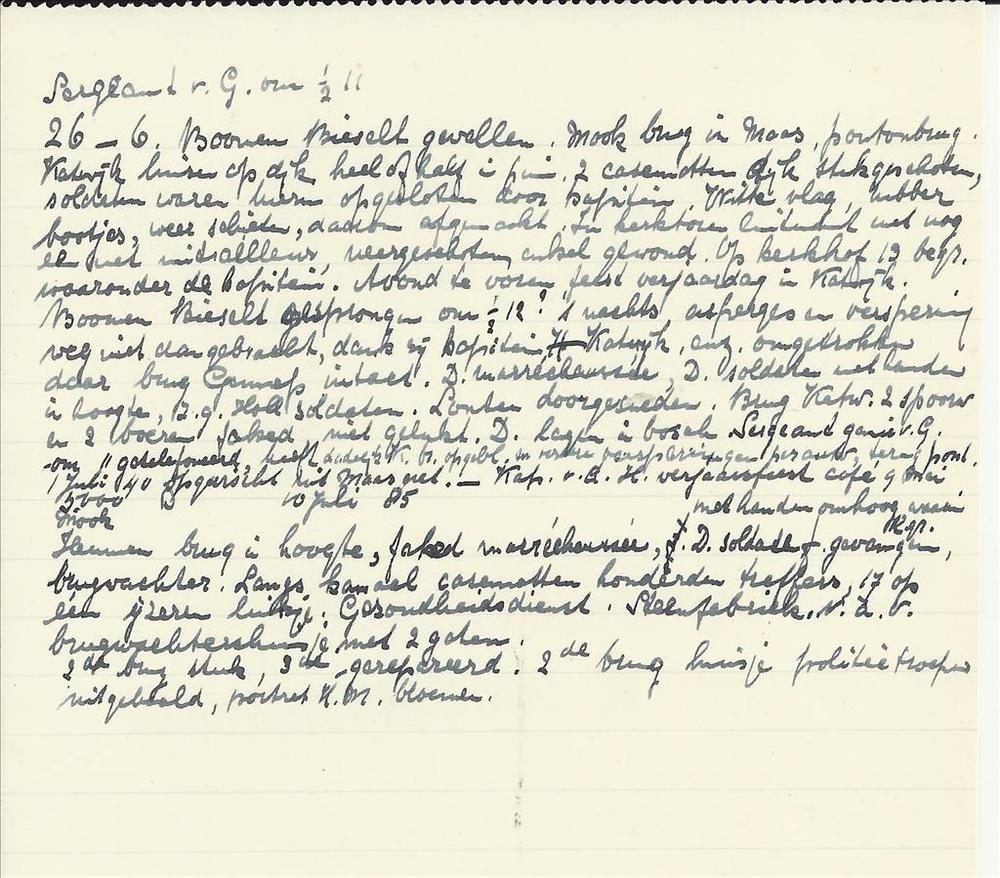 Sergeant v. G. om ½ 11
26 – 6. Boomen Bieselt gevallen. Mook brug in Maas, pontonbrug.
Katwijk huizen op dijk heel of half in puin. 2 casematten dijk stukgeschoten,
soldaten waren hierin opgesloten door kapitein. Witte vlag, rubber
bootjes, weer schieten, daarom afgemaakt. In kerktoren luitenant met nog
een met mitrailleur, neergeschoten, enkel gewond. Op kerkhof 13 begr.
waaronder de kapitein. Avond te voren feest verjaardag in Katwijk.
Boomen Bieselt gesprongen om ½ 12? 's nachts, asperges en versperring
weg niet aangebracht, dank zij kapitein Katwijk, enz. omgetrokken
daar brug Gennep intact. D. marréchaussée, D. soldaten met handen
in hoogte, z.g. Holl. soldaten. Lonten doorgesneden. Brug Katw. 2 spoorw
en 2 boeren jasked, niet gelukt. D. lagen in bosch. Sergeant genie v. G.
om 11 getelefoneerd, heeft br. opgebl. en versperringen terug pont.
1 Juli 40 opgevischt uit Maas net. – Kap. v. d. H. verjaarsfeest café 9 Mei
5000 D 10 Juli 85
met handen omhoog
Mook
Heumen brug in hoogte, jasked marréchaussée, D. soldaten gevangen,
brugwachter. Langs kanaal casematten honderden treffers, 17 op
een ijzeren luikje. Gezondheidsdienst. Steenfabriek. v. d. v.
brugwachtershuisje met 2 gaten.
2de brug stuk, 3de gerepareerd. 2de brug huisje politietroepen
uitgebeeld, portret H.M. bloemen.